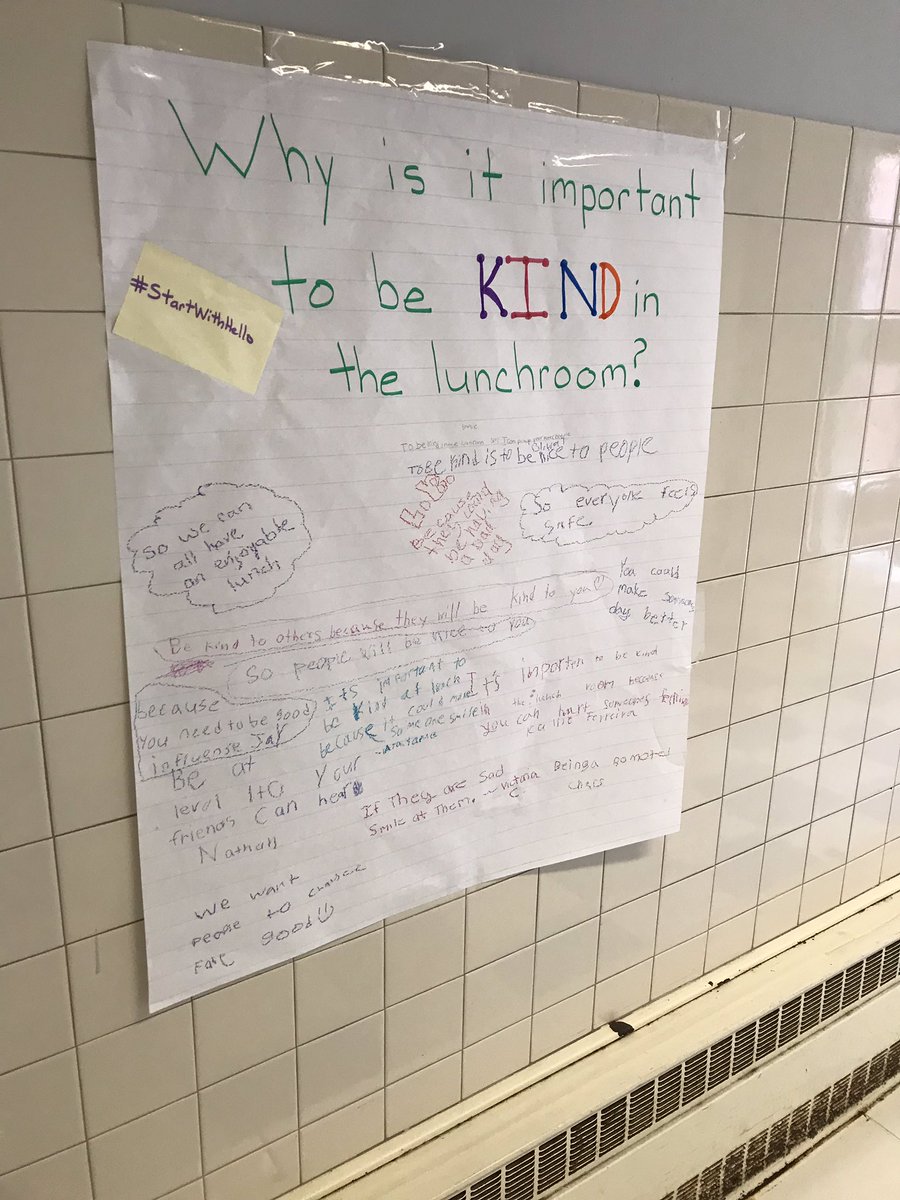 Why is it important
to be KIND in
the lunchroom?
#StartWithHello
To be kind is to be nice to people
So we can
all have
an enjoyable
lunch
Because
they could
be having
a bad
day
So everyone feels
safe.
You could
make
day better
Be kind to others because they will be kind to you
So people will be nice to you
Because
You need to be good
influence
It's important to
be kind at lunch
because it could make
someone smile
It's importen to be kind
in the lunch room because
you can hurt someones
Kallie Ferreira
Be at
level 1 to your
friends can hear
Nathan
If They are Sad
Smile at Them. ~ Victoria
C
Being a
We want
people to
good!!